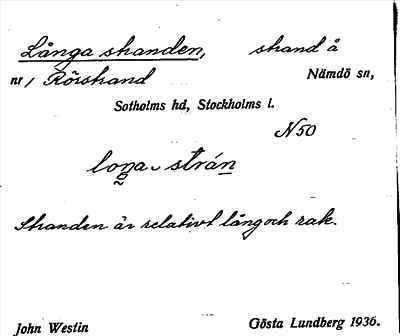 Långa stranden, strand å
nr 1 Rörstrand Nämdö sn,
Sotholms hd, Stockholms l.
N50
loŋa strán
Stranden är relativt lång och rak.
John Westin Gösta Lundberg 1936.